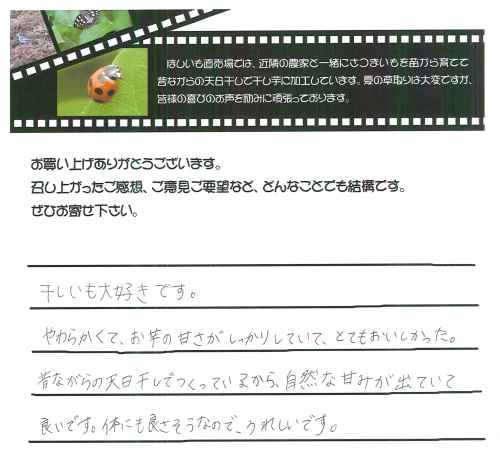 ほしいも直売場では、近隣の農家と一緒にさつまいもを苗から育てて
昔ながらの天日干しで干し芋に加工しています。夏の草取りは大変ですが、
皆様の喜びのお声を励みに頑張っております。
お買い上げありがとうございます。
召し上がったご感想、ご意見ご要望など、どんなことでも結構です。
ぜひお寄せ下さい。
干しいも大好きです。
やわらかくて、お芋の甘さがしっかりしていて、とてもおいしかった。
昔ながらの天日干しでつくっているから、自然な甘みが出ていて
良いです。体にも良さそうなので、うれしいです。